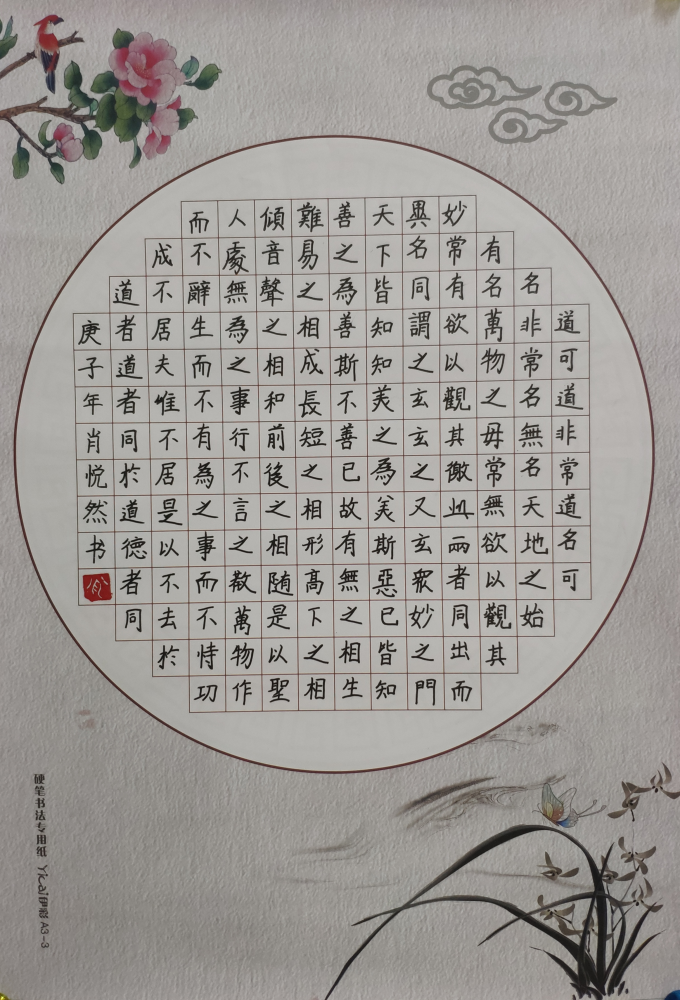 道可道非常道名可
名非常名無名天地之始
有名萬物之毋常無欲以觀其
妙常有欲以觀其徼此兩者同出而
異名同謂之玄玄之又玄眾妙之門
天下皆知知美之為美斯惡已皆知
善之為善斯不善已故有無之相生
難易之相成長短之相形高下之相
傾音聲之相和前後之相随是以聖
人處無為之事行不言之教萬物作
而不辭生而不有為之事而不恃功
成不居夫惟不居是以不去於
道者道者同於道德者同
庚子年肖悦然书
硬笔书法专用纸 Ykai伊彩 A3-3